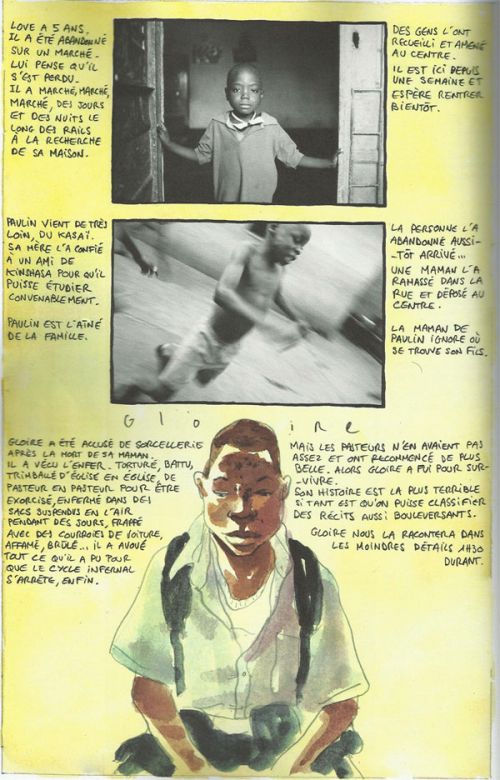 LOVE A 5 ANS.
IL A ÉTÉ ABANDONNÉ
SUR UN MARCHÉ.
LUI PENSE QU'IL
S'EST PERDU.
IL A MARCHÉ, MARCHÉ,
MARCHÉ, DES JOURS
ET DES NUITS LE
LONG DES RAILS
À LA RECHERCHE
DE SA MAISON.
DES GENS L'ONT
RECUEILLI ET AMENÉ
AU CENTRE.
IL EST ICI DEPUIS
UNE SEMAINE ET
ESPÈRE RENTRER
BIENTÔT.
PAULIN VIENT DE TRÈS
LOIN, DU KASAÏ.
SA MÈRE L'A CONFIÉ
À UN AMI DE
KINSHASA POUR QU'IL
PUISSE ÉTUDIER
CONVENABLEMENT.
PAULIN EST L'AÎNÉ
DE LA FAMILLE.
LA PERSONNE L'A
ABANDONNÉ AUSSI-
-TÔT ARRIVÉ...
UNE MAMAN L'A
RAMASSÉ DANS LA
RUE ET DÉPOSÉ AU
CENTRE.
LA MAMAN DE
PAULIN IGNORE OÙ
SE TROUVE SON FILS.
Gloire
GLOIRE A ÉTÉ ACCUSÉ DE SORCELLERIE
APRÈS LA MORT DE SA MAMAN.
IL A VÉCU L'ENFER. TORTURÉ, BATTU,
TRIMBALÉ D'ÉGLISE EN ÉGLISE, DE
PASTEUR EN PASTEUR POUR ÊTRE
EXORCISÉ, ENFERMÉ DANS DES
SACS SUSPENDUS EN L'AIR
PENDANT DES JOURS, FRAPPÉ
AVEC DES COURROIES DE VOITURE,
AFFAMÉ, BRÛLÉ... IL A AVOUÉ
TOUT CE QU'IL A PU POUR
QUE LE CYCLE INFERNAL
S'ARRÊTE, ENFIN.
MAIS LES PASTEURS N'EN AVAIENT PAS
ASSEZ ET ONT RECOMMENCÉ DE PLUS
BELLE. ALORS GLOIRE A FUI POUR SUR-
-VIVRE.
SON HISTOIRE EST LA PLUS TERRIBLE
SI TANT EST QU'ON PUISSE CLASSIFIER
DES RÉCITS AUSSI BOULEVERSANTS.
GLOIRE NOUS LA RACONTERA DANS
LES MOINDRES DÉTAILS 1H30
DURANT.